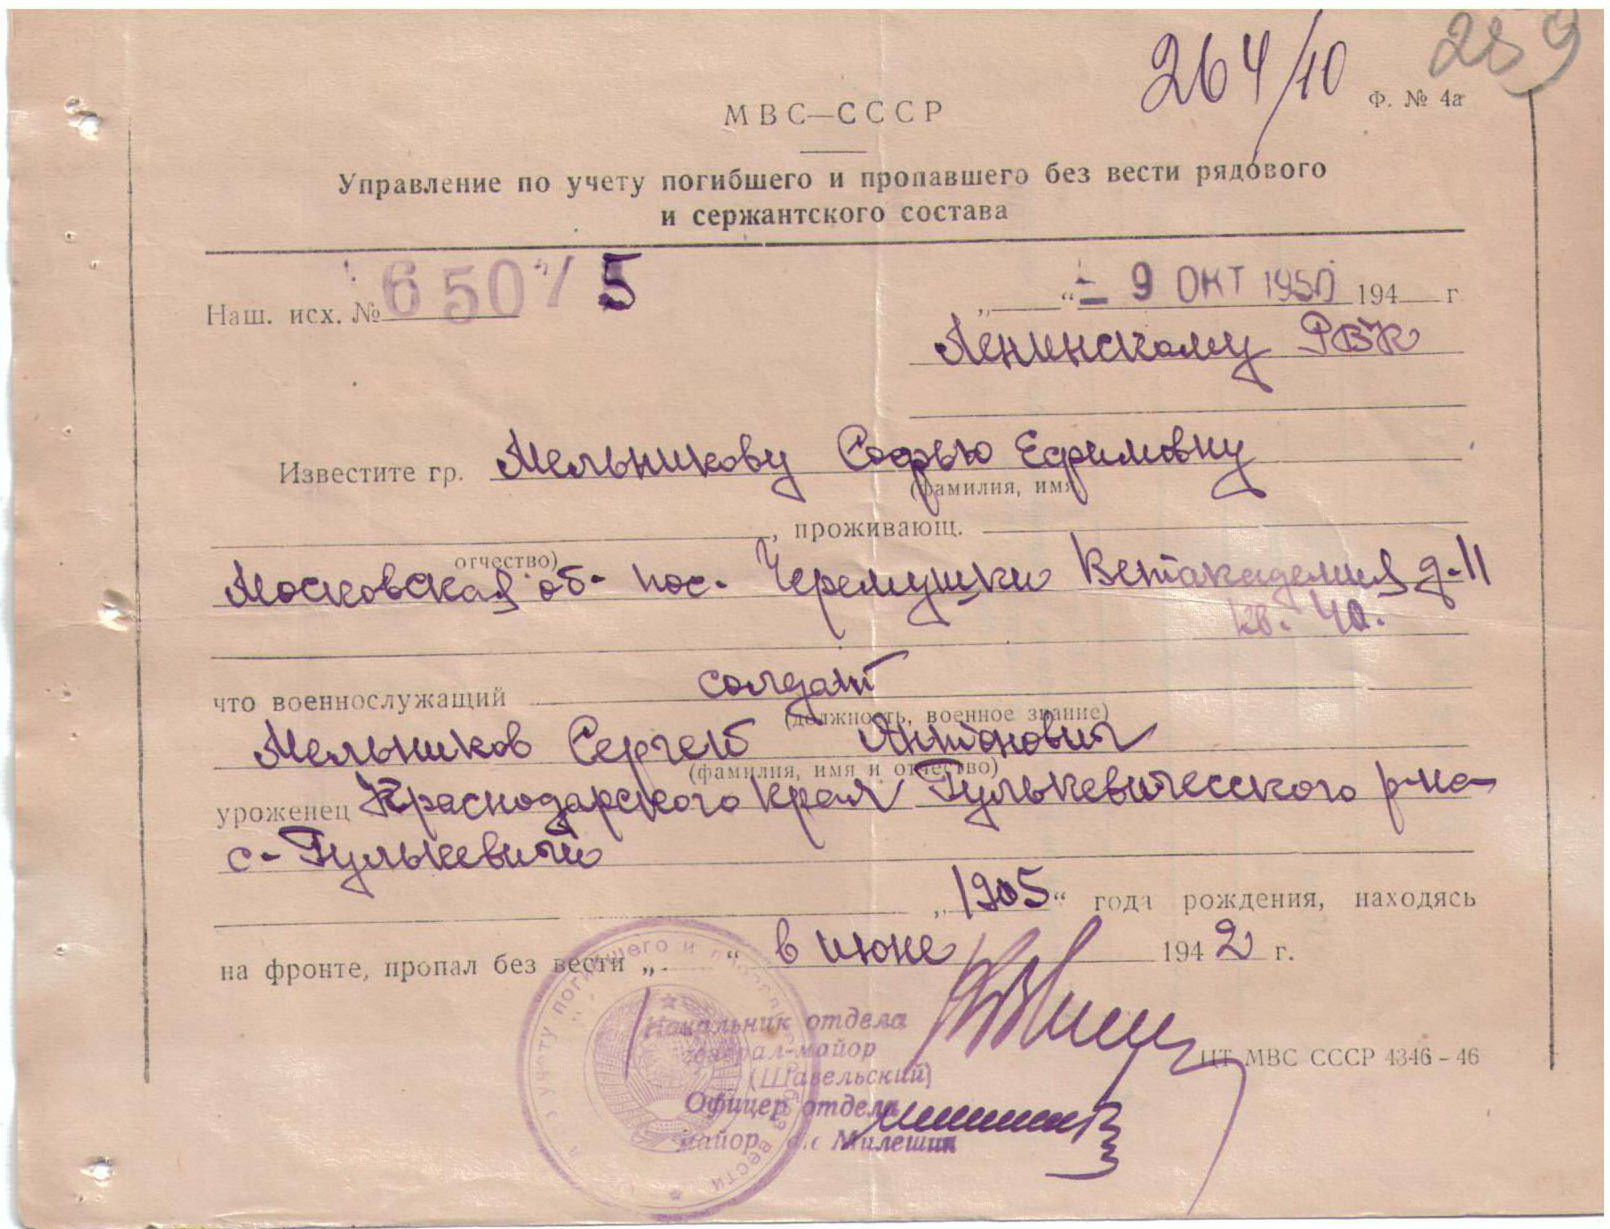 264/10
289
Ф. № 4а
МВС—СССР
Управление по учету погибшего и пропавшего без вести рядового
и сержантского состава
Наш. исх. № 65075
„ “ - 9 ОКТ 1950 194 г.
Ленинскому РВК
Известите гр. Мельникову Софью Ефимовну
(фамилия, имя
, проживающ.
отчество)
Московская об- пос. Черемушки Ветакадемия д-11
кв. 40.
что военнослужащий солдат
(должность, военное звание)
Мельников Сергей Антонович
(фамилия, имя и отчество)
уроженец Краснодарского края Гулькевичесского р-на
с-Гулькевичи
„1905“ года рождения, находясь
на фронте, пропал без вести „ “ в июне 1942 г.
Начальник отдела
генерал-майор
(Шавельский)
ЦТ МВС СССР 4346-46
Офицер отдела
майор Милешин
учету погибшего и вести